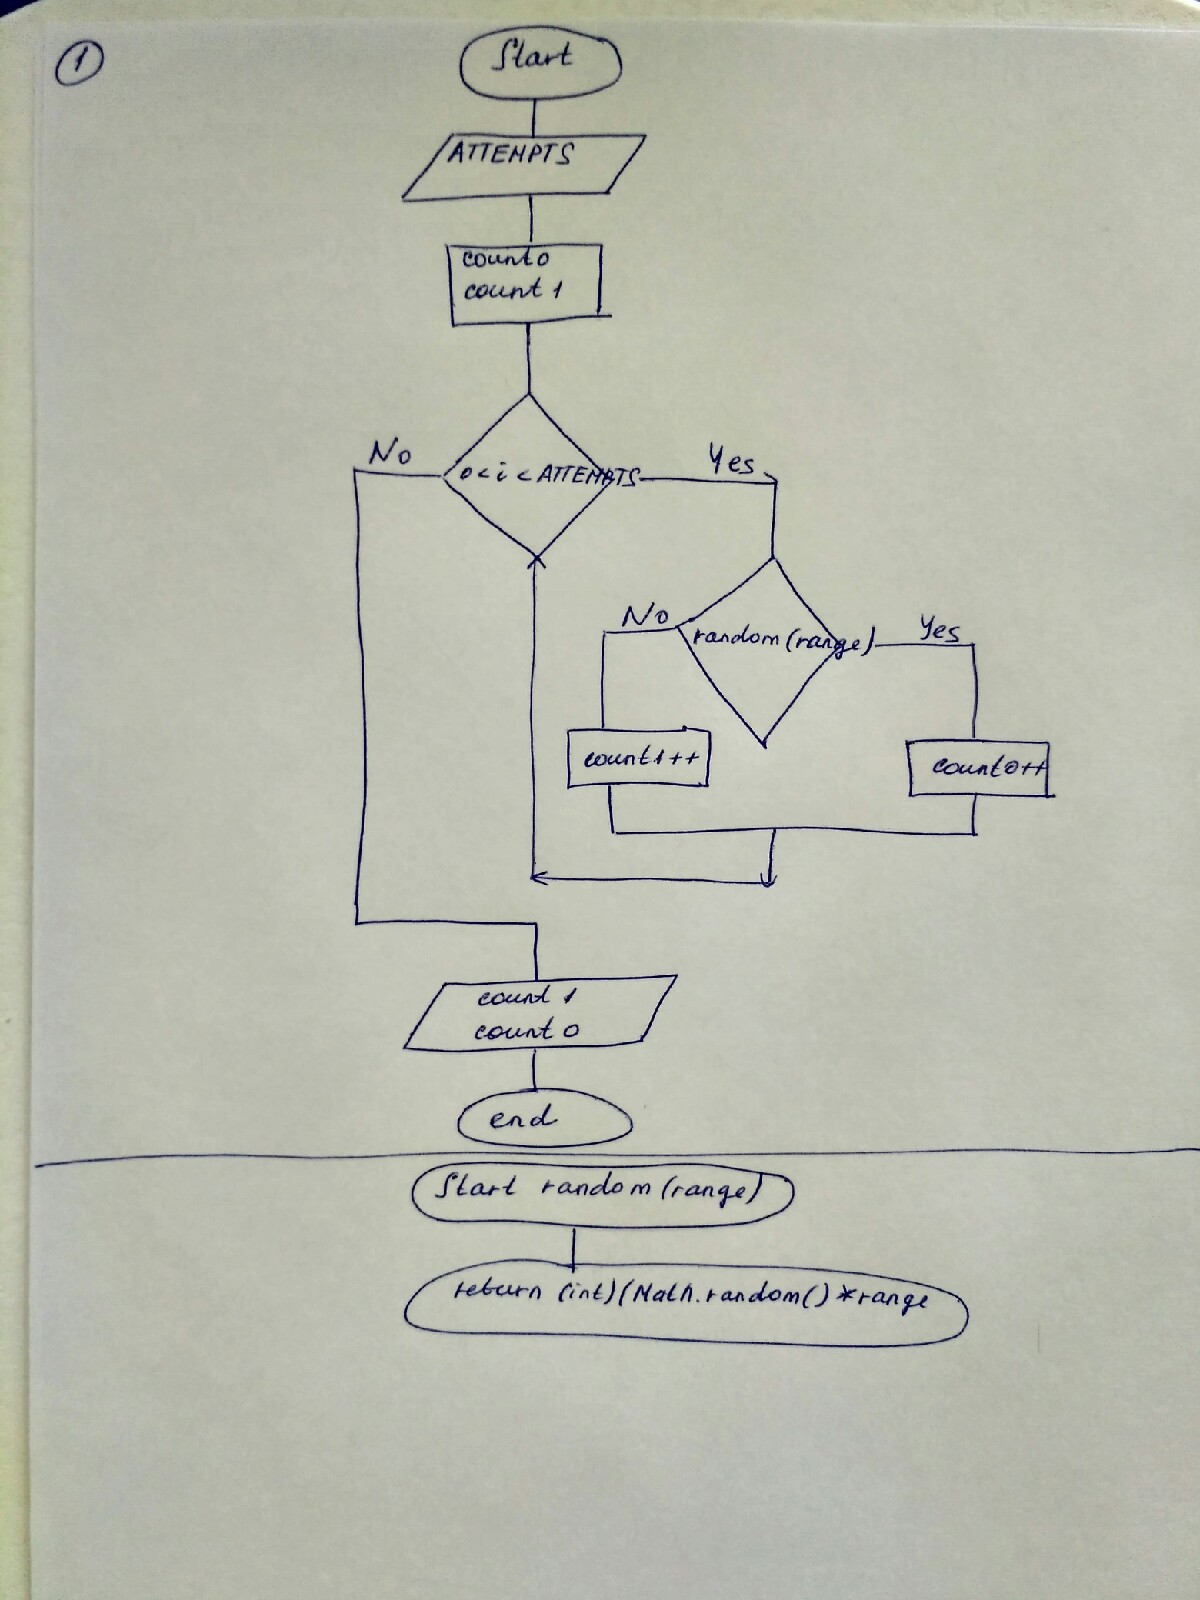 1
Start
ATTEMPTS
count0
count1
No
0<i<ATTEMPTS
Yes
No
random(range)
Yes
count1++
count0++
count1
count0
end
Start random(range)
return (int)(Math.random()*range